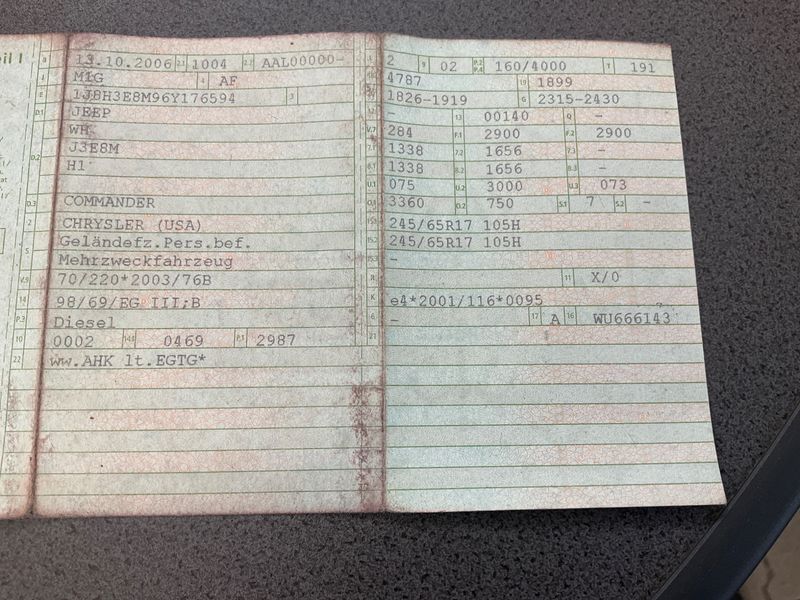 B 13.10.2006 2.1 1004 2.2 AAL00000-
J M1G 4 AF
E 1J8H3E8M96Y176594 3
D.1 JEEP
WH
D.2 J3E8M
H1
D.3 COMMANDER
2 CHRYSLER (USA)
5 Geländefz.Pers.bef.
Mehrzweckfahrzeug
V.9 70/220*2003/76B
14 98/69/EG III;B
P.3 Diesel
10 0002 14.1 0469 P.1 2987
22 ww.AHK lt.EGTG*
L 2 9 02 P.2 P.4 160/4000 T 191
18 4787 19 1899
1826-1919 G 2315-2430
12 - 13 00140 Q -
V.7 284 F.1 2900 F.2 2900
7.1 1338 7.2 1656 7.3 -
8.1 1338 8.2 1656 8.3 -
U.1 075 U.2 3000 U.3 073
O.1 3360 O.2 750 S.1 7 S.2 -
15.1 245/65R17 105H
15.2 245/65R17 105H
15.3 -
R 11 X/0
K e4*2001/116*0095
6 - 17 A 16 WU666143
21